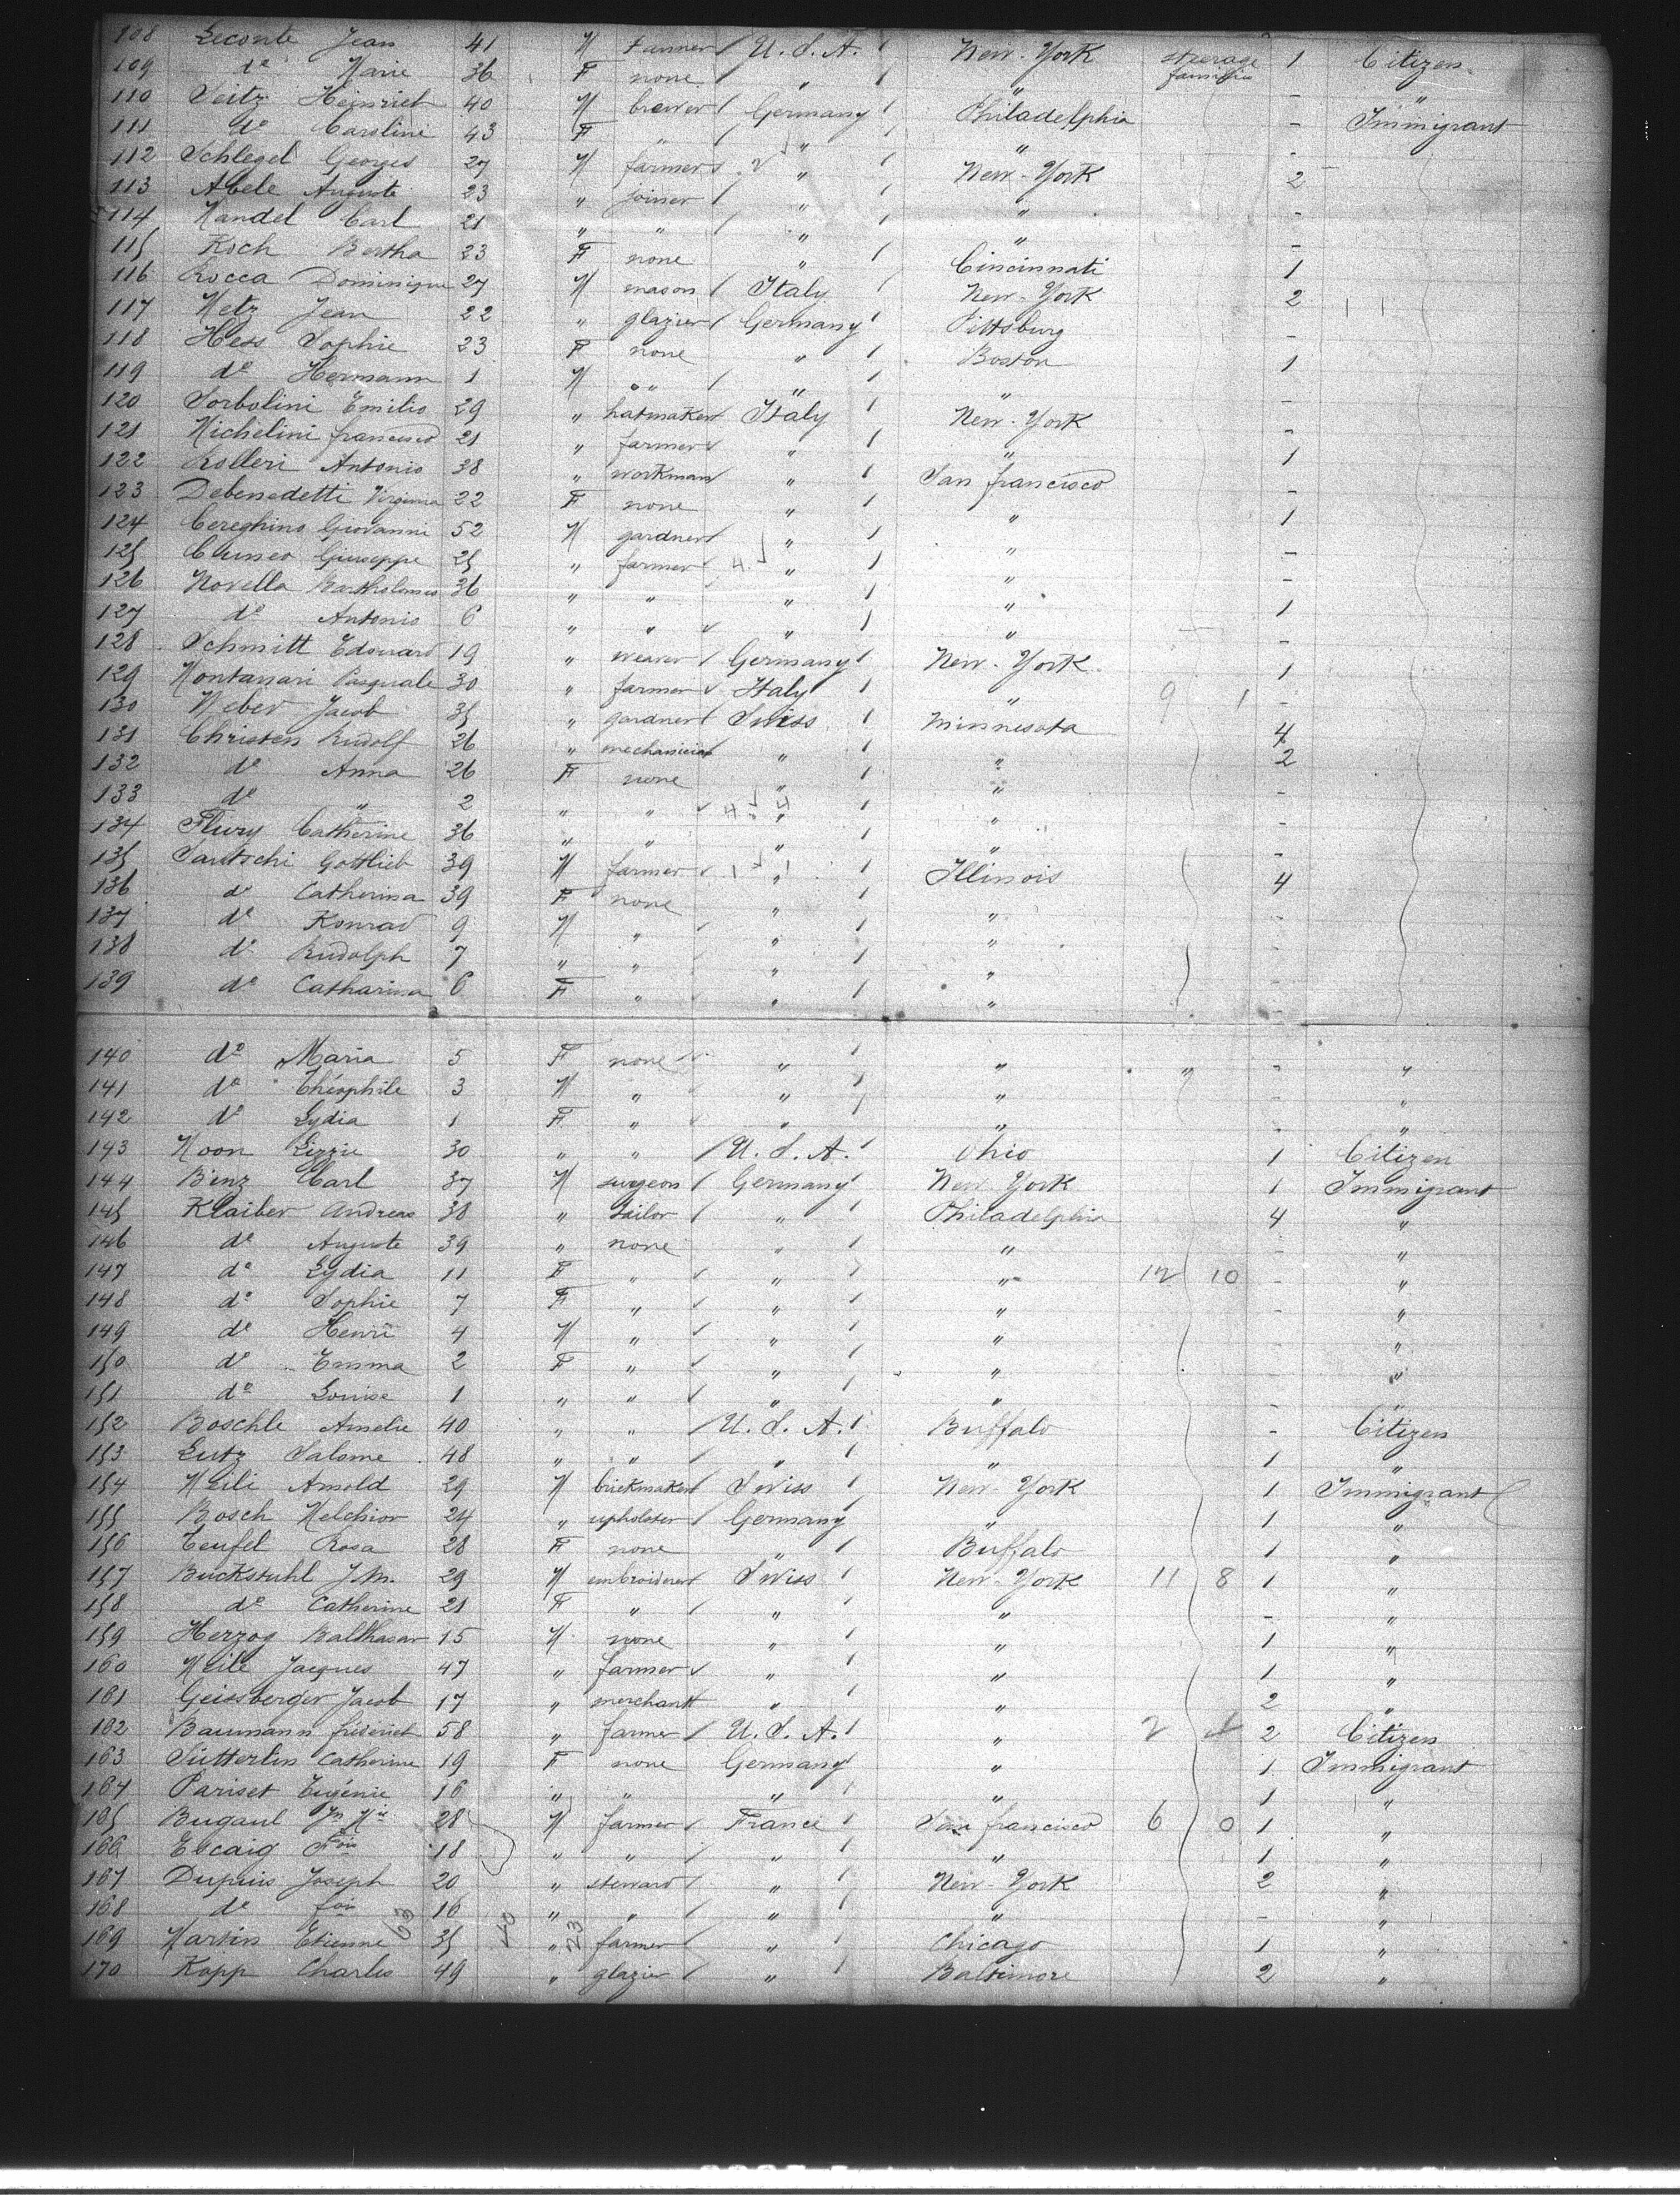 108 Leconte Jean 41 M tanner U.S.A. New-York steerage 1 Citizen
109 do Marie 36 F none " " families - "
110 Seitz Heinrich 40 M brewer Germany Philadelphia - Immigrant
111 do Caroline 43 F " " " -
112 Schlegel Georges 27 M farmer " New-York 2
113 Abele Auguste 23 " joiner " " -
114 Mandel Carl 21 " " " " -
115 Koch Bertha 23 F none " Cincinnati 1
116 Rocca Dominique 27 M mason Italy New-York 2
117 Metz Jean 22 " glazier Germany Pittsburg -
118 Hess Sophie 23 F none " Boston 1
119 do Hermann 1 M " " " -
120 Sorbolini Emilio 29 " hatmaker Italy New-York -
121 Michelini francisco 21 " farmer " " 1
122 Rolleri Antonio 38 " workman " San francisco -
123 Debenedetti Virginia 22 F none " " 1
124 Cereghino Giovanni 52 M gardner " " -
125 Cuneo Giuseppe 25 " farmer 4 " " -
126 Novella Bartholomeo 36 " " " " 1
127 do Antonio 6 " " " " -
128 Schmitt Edouard 19 " weaver Germany New-York 1
129 Montanari Pasquale 30 " farmer Italy " 9 1 -
130 Weber Jacob 35 " gardner Swiss Minnesota 4
131 Christen Rudolf 26 " mechanician " " 2
132 do Anna 26 F none " " -
133 do " 2 " " 4 4 " " -
134 Flury Catherine 36 " " " " -
135 Santschi Gottlieb 39 M farmer 1 1 " Illinois 4
136 do Catherina 39 F none " " -
137 do Konrad 9 M " " " -
138 do Rudolph 7 " " " " -
139 do Catharina 6 F " " " -
140 do Maria 5 F none " " " - "
141 do Théophile 3 M " " " - "
142 do Lydia 1 F " " " - "
143 Moon Lizzie 30 " " U.S.A. Ohio 1 Citizen
144 Binz Carl 37 M surgeon Germany New York 1 Immigrant
145 Klaiber Andreas 38 " tailor " Philadelphia 4 "
146 do Auguste 39 " none " " - "
147 do Lydia 11 F " " " 12 10 - "
148 do Sophie 7 F " " " - "
149 do Henri 4 M " " " - "
150 do Emma 2 F " " " - "
151 do Louise 1 " " " " - "
152 Boschle Amelie 40 " " U.S.A. Buffalo - Citizen
153 Lutz Salome 48 " " " " 1 "
154 Meili Arnold 29 M brickmaker Swiss New-York 1 Immigrant
155 Bosch Melchior 24 " upholster Germany " 1 "
156 Teufel Rosa 28 F none " Buffalo 1 "
157 Buckstuhl J.M. 29 M embroiderer Swiss New-York 11 8 1 "
158 do Catherine 21 F " " " - "
159 Herzog Balthasar 15 M none " " 1 "
160 Meile Jacques 47 " farmer " " 1 "
161 Geissberger Jacob 17 " merchant " " 2 "
162 Baumann friedrich 58 " farmer U.S.A. " 2 2 Citizen
163 Sütterlin Catherine 19 F none Germany " 1 Immigrant
164 Pariset Eugénie 16 " " " " 1 "
165 Bugaul Jn 28 M farmer France San francisco 6 0 1 "
166 Escaig 18 " " " " 1 "
167 Dupuis Joseph 20 " steward " New-York 2 "
168 do fois 16 " " " " - "
169 Martin Etienne 35 " farmer " Chicago 1 "
63 40 23
170 Kopp Charles 49 " glazier " Baltimore 2 "